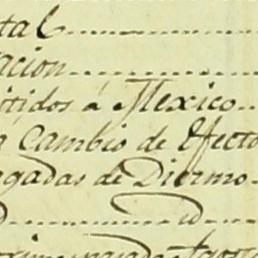 tal
acion
itidos á Mexico
a Cambio de Efecto
egadas de Diezmo
d id